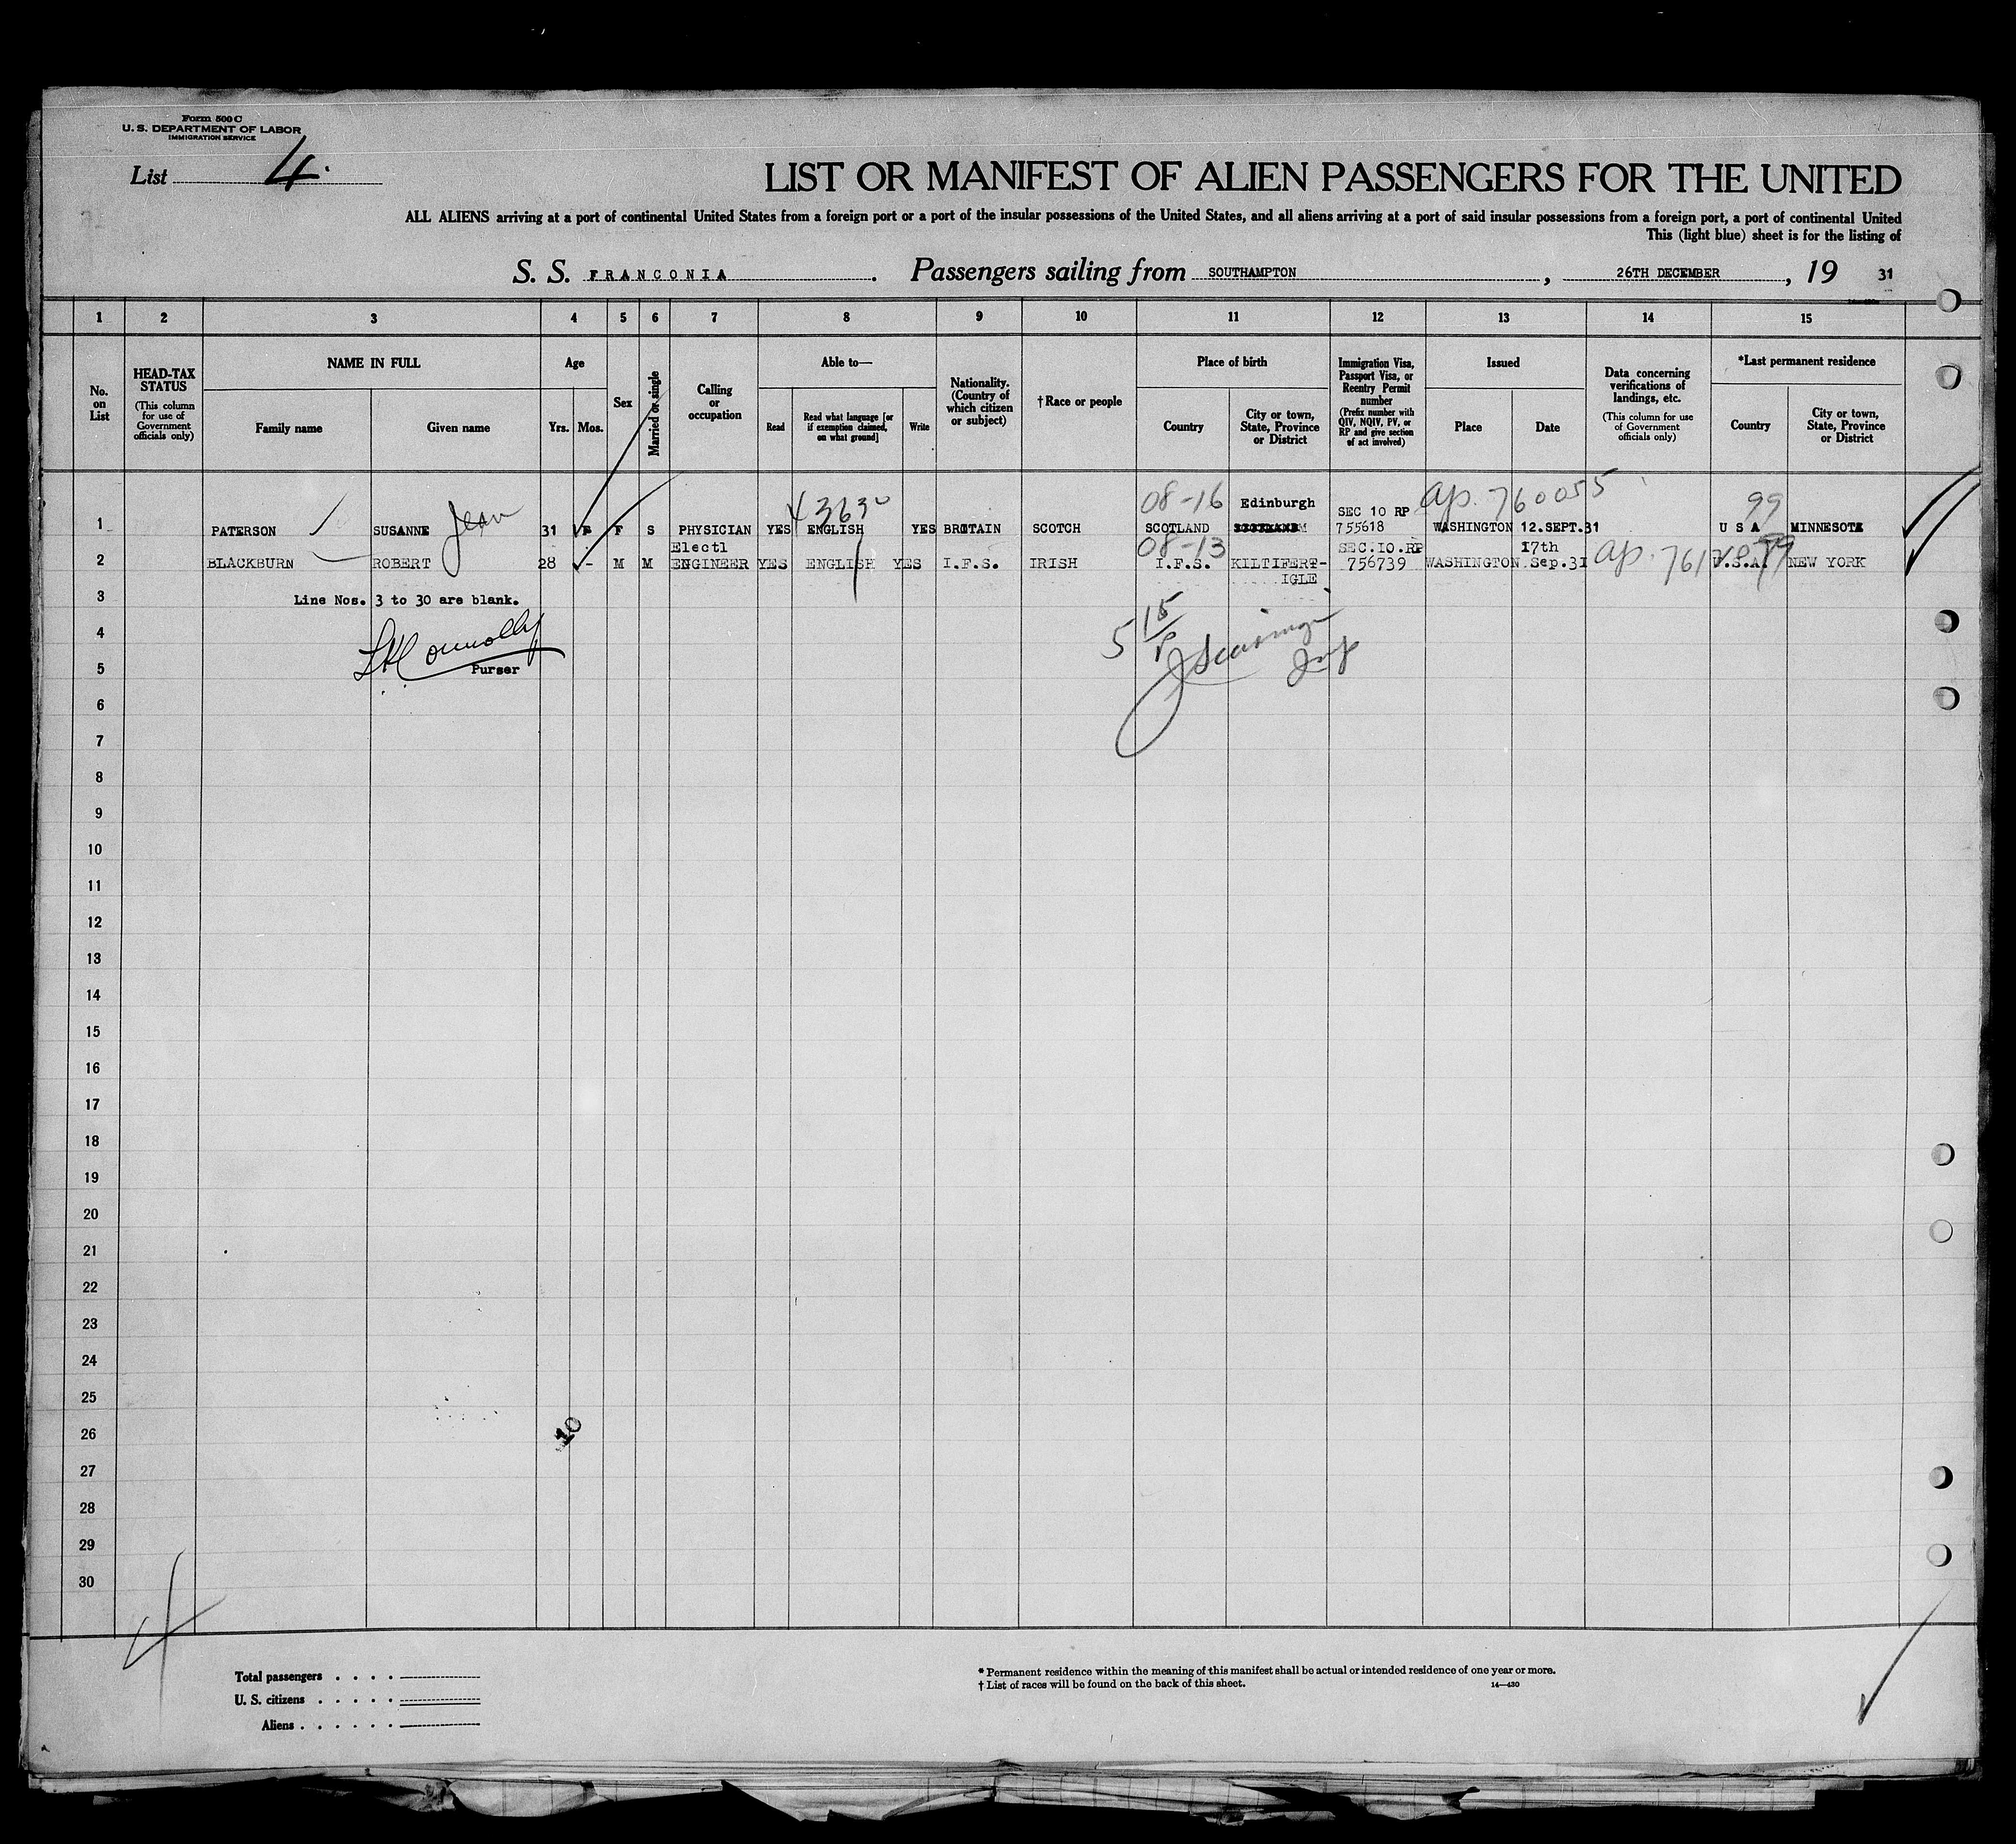 Form 500 C
U. S. DEPARTMENT OF LABOR
IMMIGRATION SERVICE
List 4.
LIST OR MANIFEST OF ALIEN PASSENGERS FOR THE UNITED
ALL ALIENS arriving at a port of continental United States from a foreign port or a port of the insular possessions of the United States, and all aliens arriving at a port of said insular possessions from a foreign port, a port of continental United
This (light blue) sheet is for the listing of
S. S. FRANCONIA. Passengers sailing from SOUTHAMPTON, 26TH DECEMBER, 19 31
1 2 3 4 5 6 7 8 9 10 11 12 13 14 15
No. on List
HEAD-TAX STATUS
(This column for use of Government officials only)
NAME IN FULL
Family name
Given name
Age
Yrs. Mos.
Sex
Married or single
Calling or occupation
Able to—
Read
Read what language [or if exemption claimed, on what ground]
Write
Nationality. (Country of which citizen or subject)
†Race or people
Place of birth
Country
City or town, State, Province or District
Immigration Visa, Passport Visa, or Reentry Permit number
(Prefix number with QIV, NQIV, PV, or RP and give section of act involved)
Issued
Place
Date
Data concerning verifications of landings, etc.
(This column for use of Government officials only)
*Last permanent residence
Country
City or town, State, Province or District
08-16 Edinburgh SEC 10 RP ap. 760055 99
1 PATERSON SUSANNE Jean 31 F S PHYSICIAN YES ENGLISH YES BRITAIN SCOTCH SCOTLAND 755618 WASHINGTON 12.SEPT.31 U S A MINNESOTA
Electl 08-13 SEC.IO.RP I7th
2 BLACKBURN ROBERT 28 - M M ENGINEER YES ENGLISH YES I.F.S. IRISH I.F.S. KILTIFERT- 756739 WASHINGTON Sep.3I ap. 761 U.S.A. NEW YORK
IGLE
3 Line Nos. 3 to 30 are blank.
4
5 Purser
6
7
8
9
10
11
12
13
14
15
16
17
18
19
20
21
22
23
24
25
26 10
27
28
29
30
4
Total passengers . . . .
U. S. citizens . . . . .
Aliens . . . . . .
* Permanent residence within the meaning of this manifest shall be actual or intended residence of one year or more.
† List of races will be found on the back of this sheet. 14—430